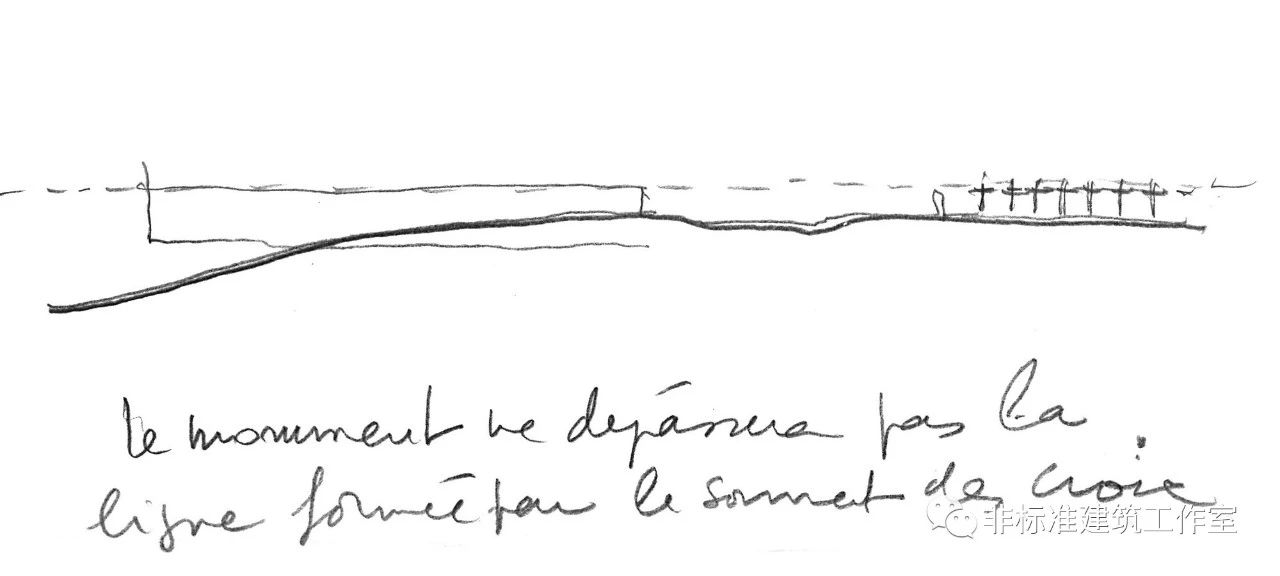 le monument ne dépassera pas la
ligne formée par le sommet des croix
非标准建筑工作室